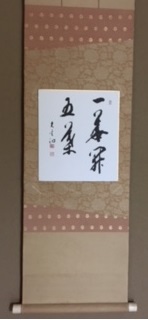 一華開
五葉